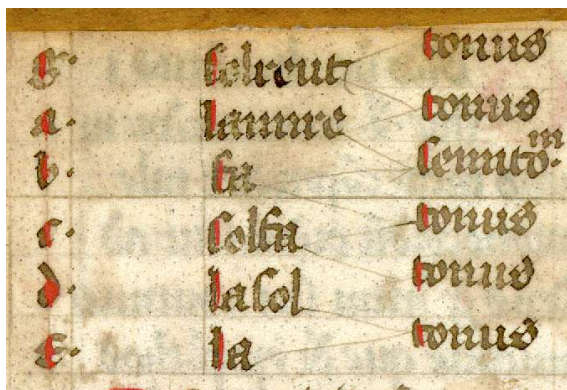 g. solreut tonus
a. lamire tonus
b. fa semito.m
c. solfa tonus
d. lasol tonus
e. la tonus